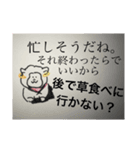 忙しそうだね。
それ終わったらで
いいから
後で草食べに
行かない?